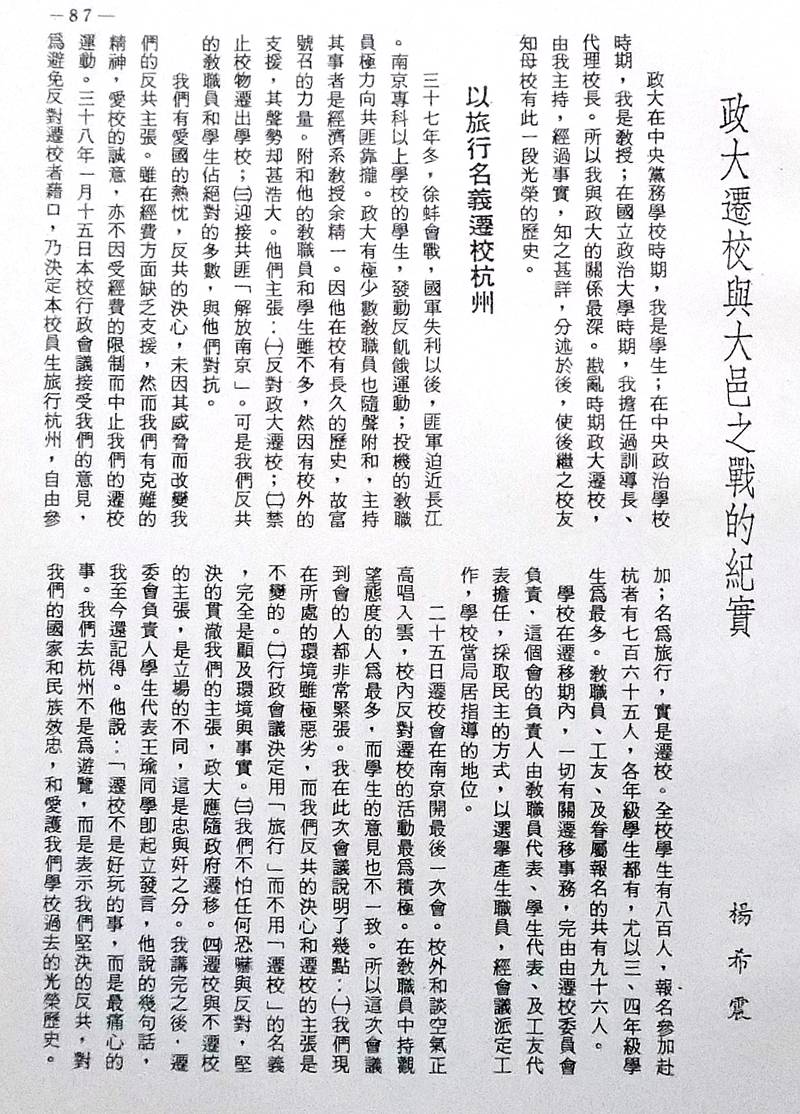 —87—
政大遷校與大邑之戰的紀實
楊希震
政大在中央黨務學校時期，我是學生；在中央政治學校
時期，我是教授；在國立政治大學時期，我擔任過訓導長、
代理校長。所以我與政大的關係最深。戡亂時期政大遷校，
由我主持，經過事實，知之甚詳，分述於後，使後繼之校友
知母校有此一段光榮的歷史。
以旅行名義遷校杭州
三十七年冬，徐蚌會戰，國軍失利以後，匪軍迫近長江
。南京專科以上學校的學生，發動反飢餓運動；投機的教職
員極力向共匪靠攏。政大有極少數教職員也隨聲附和，主持
其事者是經濟系教授余精一。因他在校有長久的歷史，故富
號召的力量。附和他的教職員和學生雖不多，然因有校外的
支援，其聲勢却甚浩大。他們主張：㈠反對政大遷校；㈡禁
止校物遷出學校；㈢迎接共匪「解放南京」。可是我們反共
的教職員和學生佔絕對的多數，與他們對抗。
我們有愛國的熱忱，反共的決心，未因其威脅而改變我
們的反共主張。雖在經費方面缺乏支援，然而我們有克難的
精神，愛校的誠意，亦不因受經費的限制而中止我們的遷校
運動。三十八年一月十五日本校行政會議接受我們的意見，
爲避免反對遷校者藉口，乃決定本校員生旅行杭州，自由參
加；名爲旅行，實是遷校。全校學生有八百人，報名參加赴
杭者有七百六十五人，各年級學生都有，尤以三、四年級學
生爲最多。教職員、工友、及眷屬報名的共有九十六人。
學校在遷移期內，一切有關遷移事務，完由由遷校委員會
負責，這個會的負責人由教職員代表、學生代表、及工友代
表擔任，採取民主的方式，以選舉產生職員，經會議派定工
作，學校當局居指導的地位。
二十五日遷校會在南京開最後一次會。校外和談空氣正
高唱入雲，校內反對遷校的活動最爲積極。在教職員中持觀
望態度的人爲最多，而學生的意見也不一致。所以這次會議
到會的人都非常緊張。我在此次會議說明了幾點：㈠我們現
在所處的環境雖極惡劣，而我們反共的決心和遷校的主張是
不變的。㈡行政會議決定用「旅行」而不用「遷校」的名義
，完全是顧及環境與事實。㈢我們不怕任何恐嚇與反對，堅
決的貫澈我們的主張，政大應隨政府遷移。㈣遷校與不遷校
的主張，是立場的不同，這是忠與奸之分。我講完之後，遷
委會負責人學生代表王瑜同學卽起立發言，他說的幾句話，
我至今還記得。他說：「遷校不是好玩的事，而是最痛心的
事。我們去杭州不是爲遊覽，而是表示我們堅決的反共，對
我們的國家和民族效忠，和愛護我們學校過去的光榮歷史。